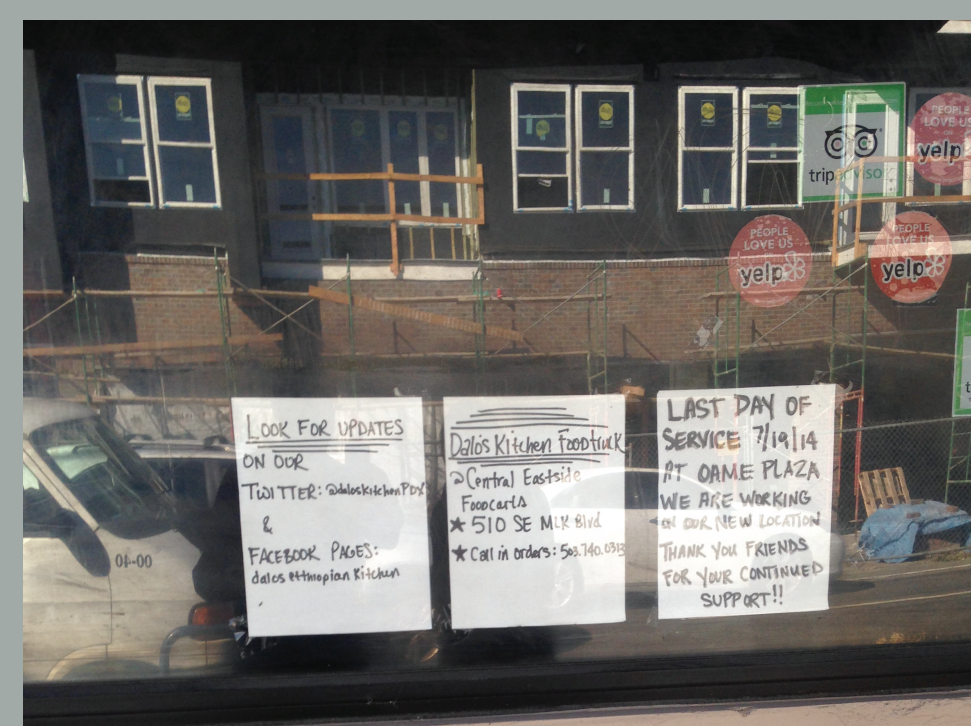 tripadvisor
PEOPLE
LOVE US
ON
yelp
PEOPLE
LOVE US
yelp
PEOPLE
LOVE US
yelp
01-00
LOOK FOR UPDATES
ON OUR
TWITTER: @daloskitchenPDX
&
FACEBOOK PAGES:
dalos ethiopian Kitchen
Dalo's Kitchen Foodtruck
@Central Eastside
Foodcarts
★ 510 SE MLK Blvd
★ Call in orders: 503.740.0313
LAST DAY OF
SERVICE 7/19/14
AT OAME PLAZA
WE ARE WORKING
ON OUR NEW LOCATION
THANK YOU FRIENDS
FOR YOUR CONTINUED
SUPPORT!!